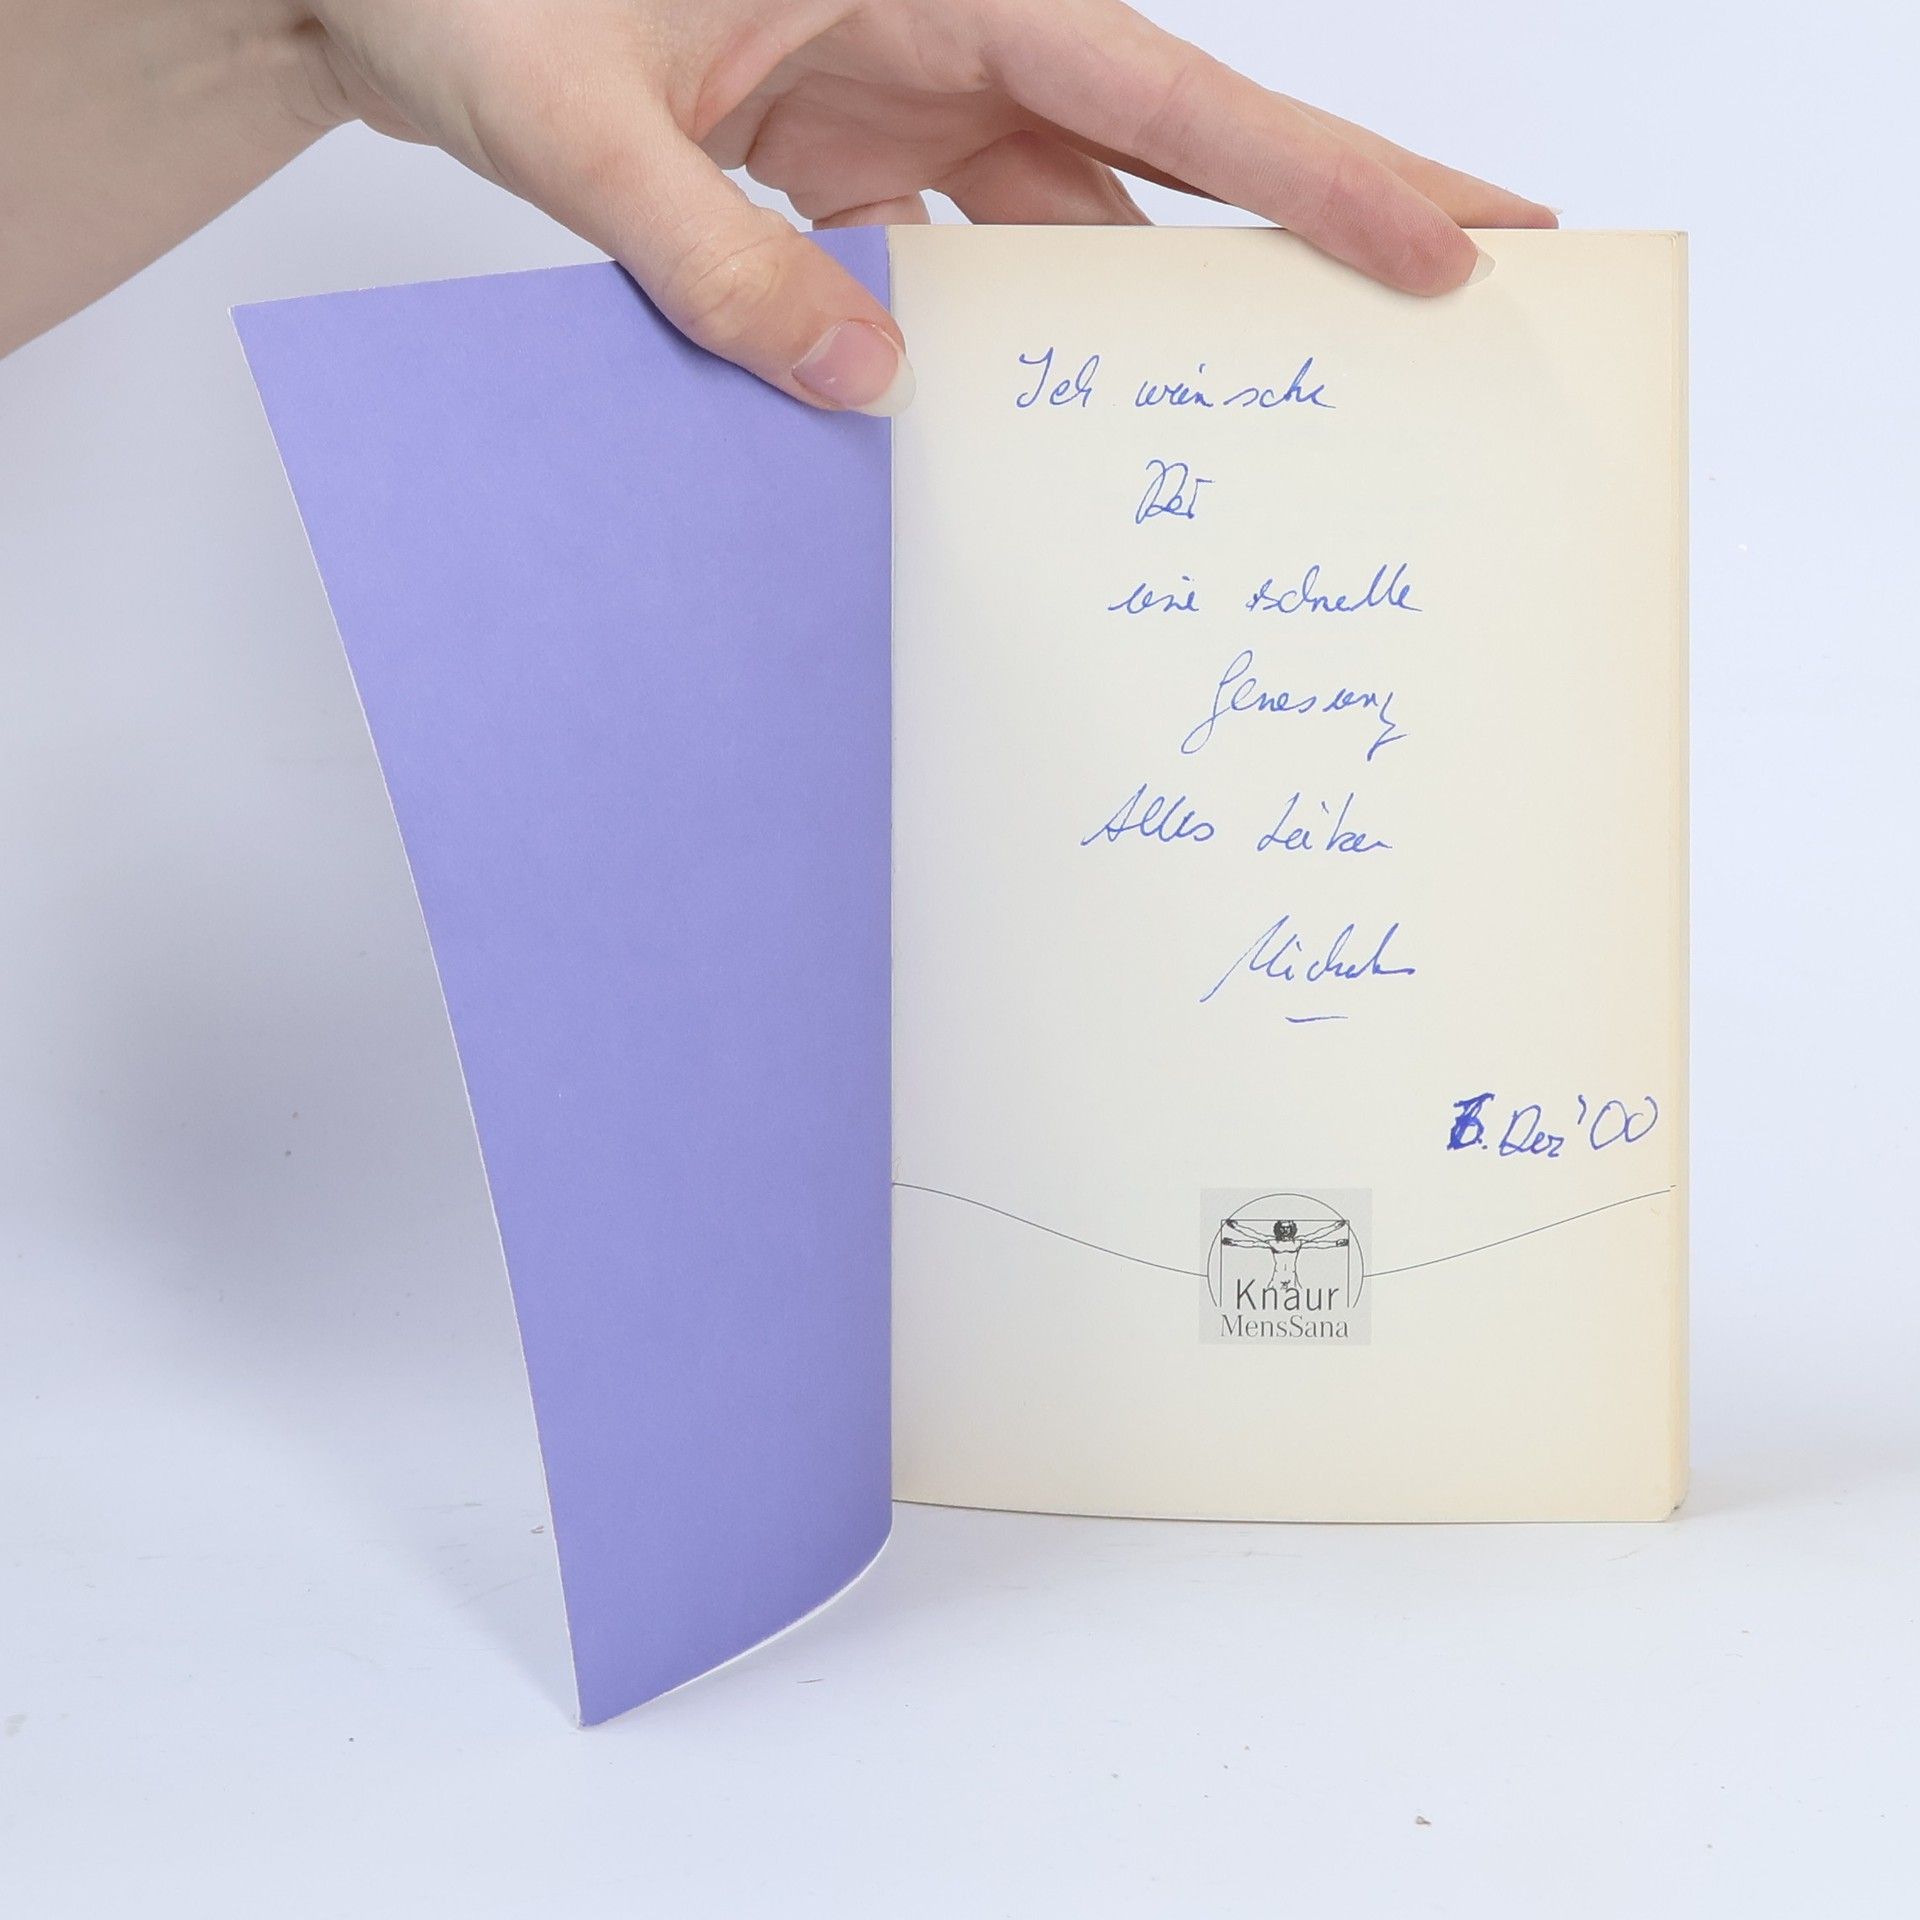 Ich wünsche
Dir
eine schnelle
Genesung
Alles Liebe
6. Dez '00
Knaur
MensSana